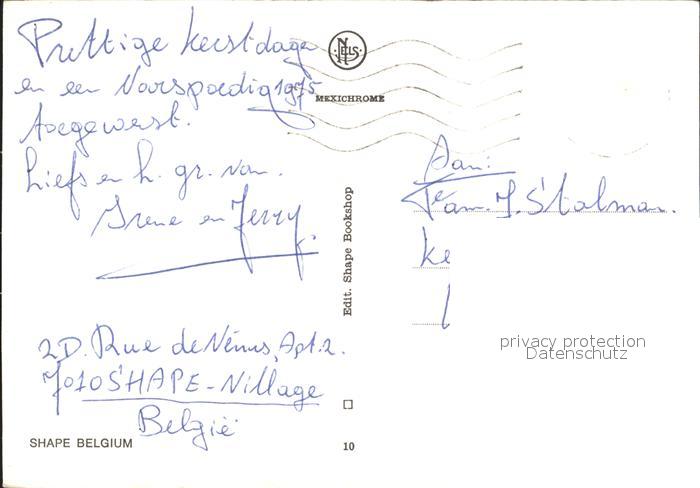 Prettige kerstdage
en een Voorspoedig 1975
toegewenst.
Liefs en h. gr. van.
Irene en Jerry.
2D. Rue de Vénus, Apt. 2.
7010 SHAPE-Village
België
SHAPE BELGIUM
NELS
MEXICHROME
Edit. Shape Bookshop
10
Aan:
Fam. J. Stolman.
ke
privacy protection
Datenschutz